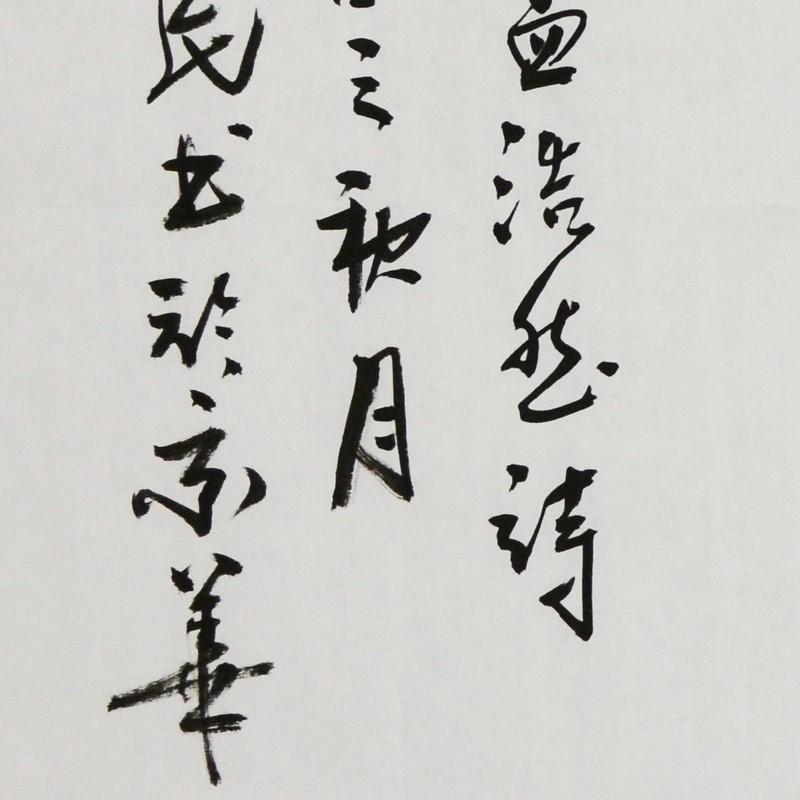 孟浩然詩
之秋月
民书於京華